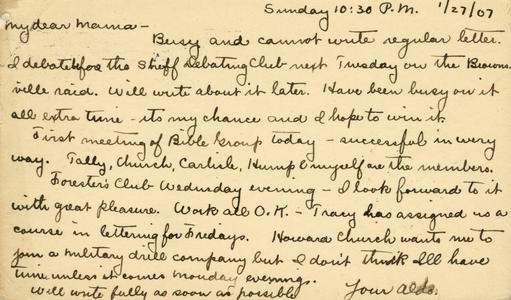 Sunday 10:30 P.M. 1/27/07
My dear Mama -
Busy and cannot write regular letter.
I debate for the Streff Debating Club next Tuesday on the Beacons
ville raid. Will write about it later. Have been busy on it
all extra time - its my chance and I hope to win it.
First meeting of Bible Group today - successful in every
way. Tally, Church, Carlisle, Hump & myself are the members.
Forester's Club Wednesday evening - I look forward to it
with great pleasure. Work all O.K. - Tracy has assigned us a
course in lettering for Fridays. Howard Church wants me to
join a military drill company but I don't think I'll have
time unless it comes Monday evenings.
Will write fully as soon as possible Your Aldo.